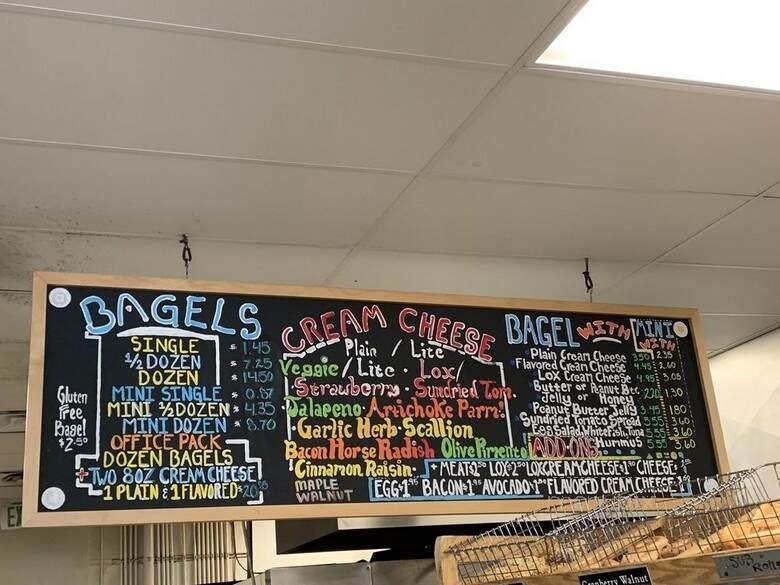 BAGELS
SINGLE $1.45
1/2 DOZEN $7.25
DOZEN $14.50
MINI SINGLE $0.87
MINI 1/2 DOZEN $4.35
MINI DOZEN $8.70
OFFICE PACK
DOZEN BAGELS
+ TWO 8OZ CREAM CHEESE
1 PLAIN & 1 FLAVORED
Gluten
Free
Bagel
$2.50
CREAM CHEESE
Plain / Lite
Veggie / Lite · Lox /
Strawberry · Sundried Tom.
Jalapeno · Artichoke Parm.
Garlic Herb · Scallion
Bacon Horse Radish Olive Pimento
Cinnamon Raisin
MAPLE
WALNUT
BAGEL WITH MINI WITH
Plain Cream Cheese 3.50 2.35
Flavored Cream Cheese 4.45 2.60
Lox Cream Cheese 4.95 3.05
Butter or Peanut Butter
Jelly or Honey 2.20 1.30
Peanut Butter Jelly 3.45 1.80
Sundried Tomato Spread
Egg Salad, Whitefish, Tuna
Hummus
ADD-ONS
+ MEAT LOX LOX CREAM CHEESE CHEESE
EGG BACON AVOCADO FLAVORED CREAM CHEESE
Cranberry Walnut
SUB